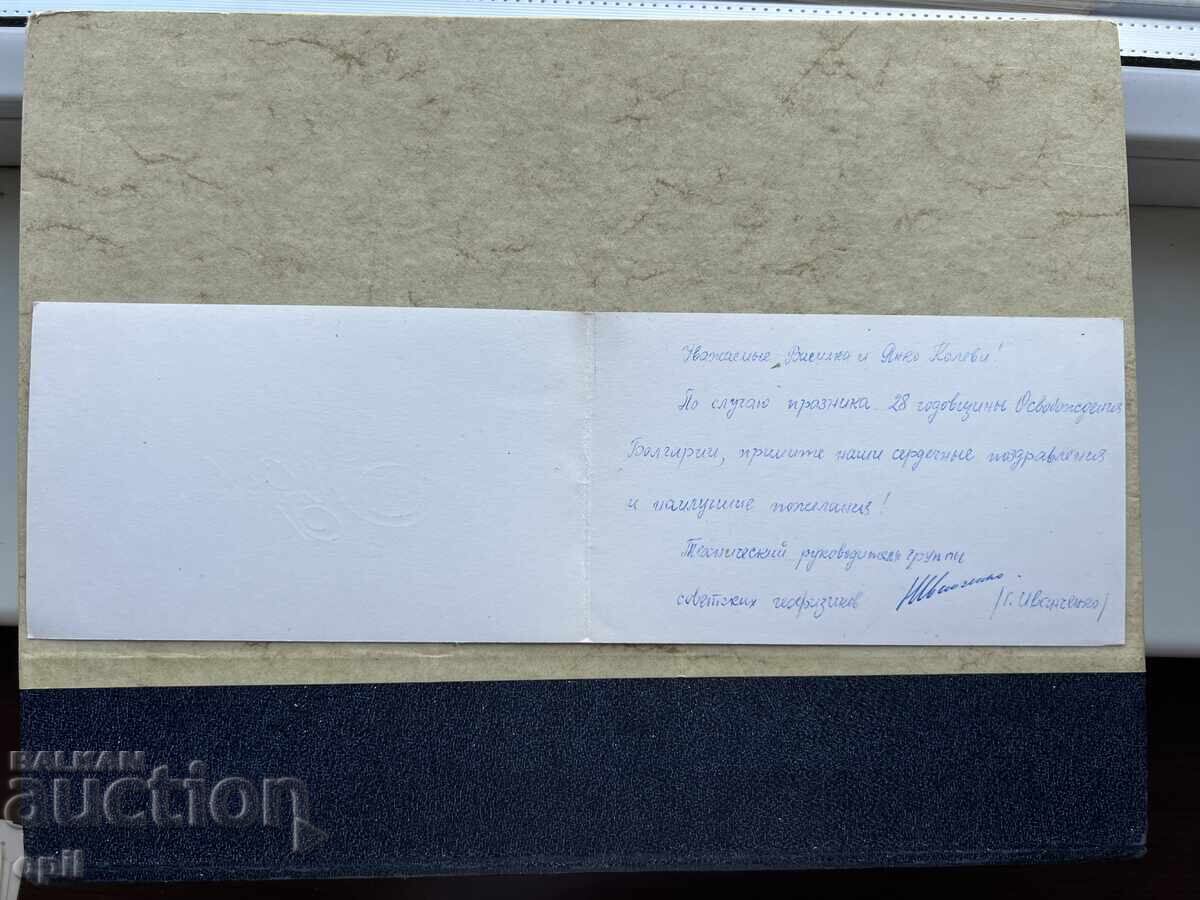 Уважаемые Василка и Янко Колеви!
По случаю празника 28 годовщины Освобождения
Болгарии, примите наши сердечные поздравления
и наилучшие пожелания!
Технический руководитель группы
советских геофизиков
/Г. Иванченко/
BALKAN
auction
epil